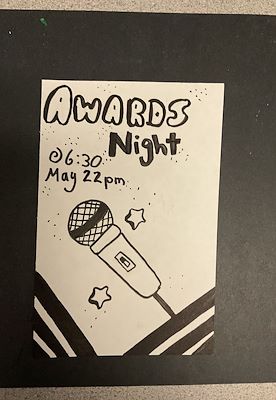 AWARDS
Night
@6:30
May 22pm